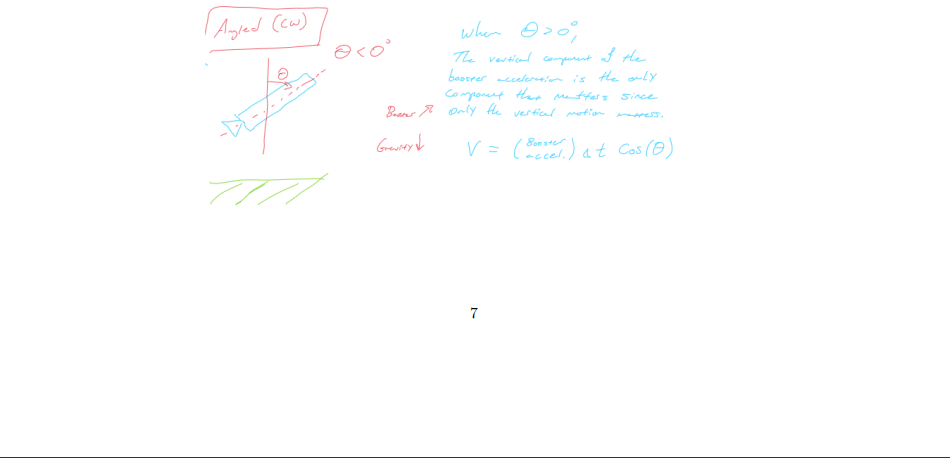 Angled (CW)
θ < 0°
θ
Booster ↗
Gravity ↓
When θ > 0°,
The vertical component of the
booster acceleration is the only
component that matters since
only the vertical motion matters.
V = (Booster accel.) Δt Cos(θ)
7